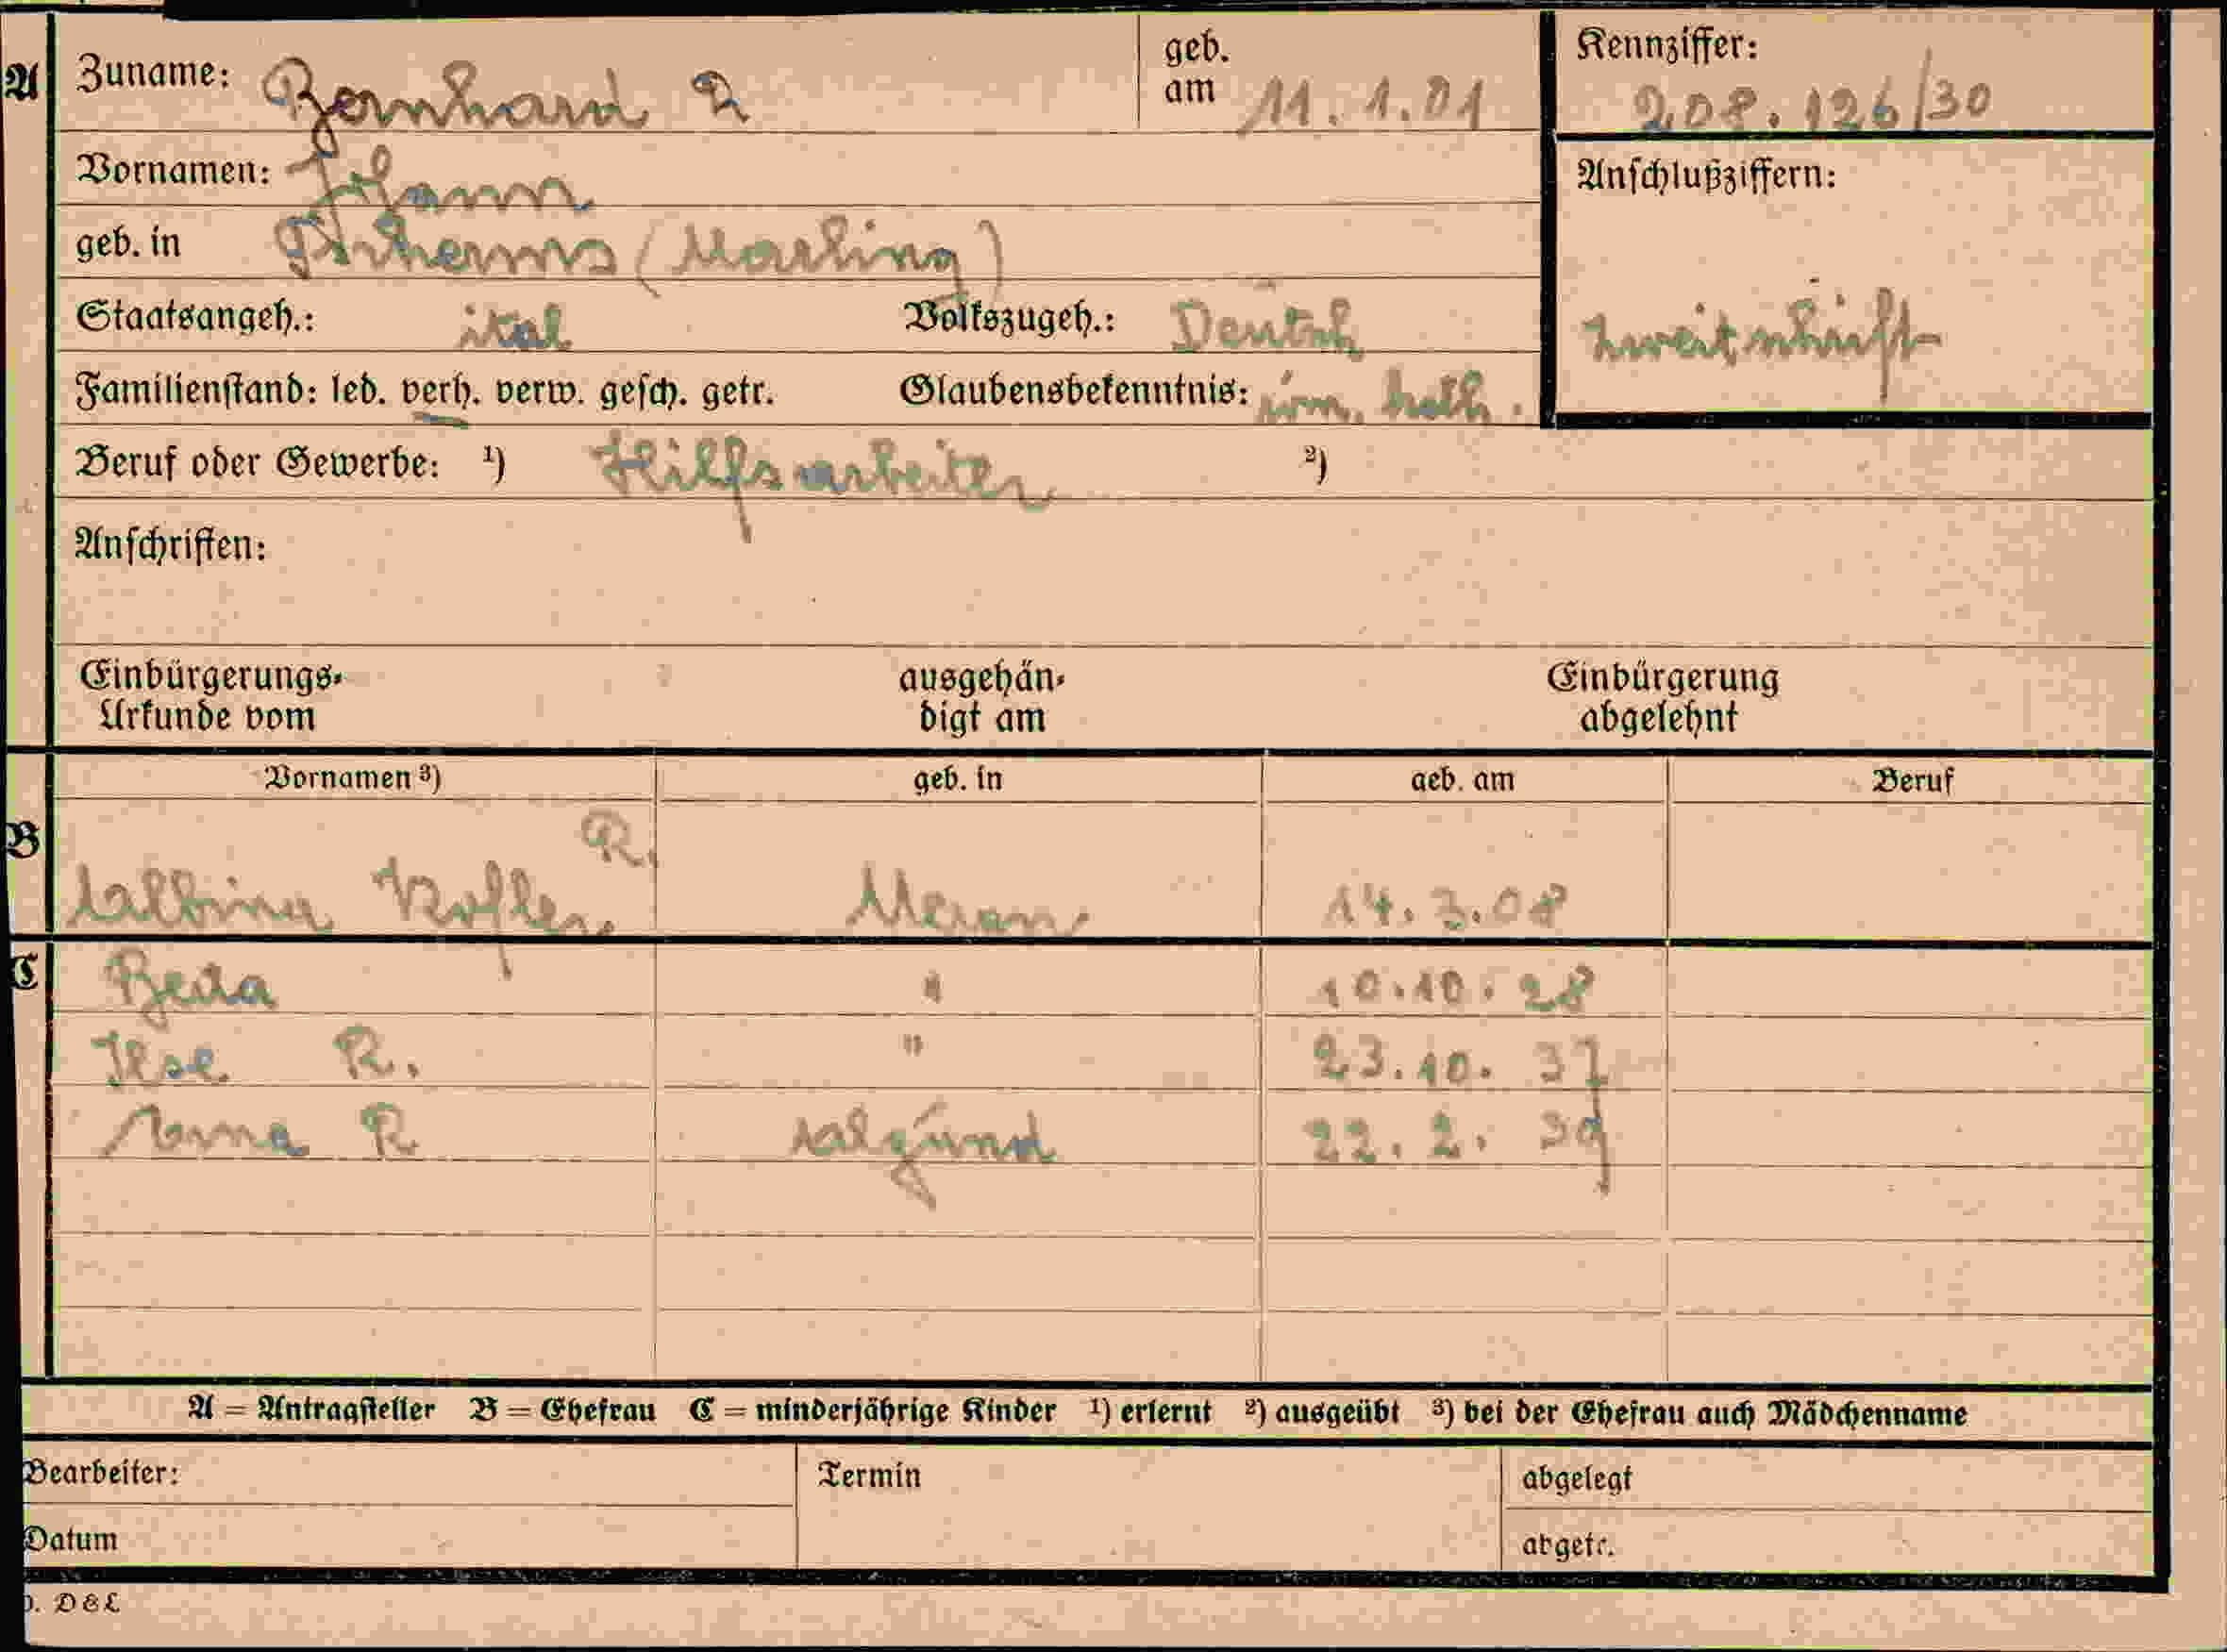 A Zuname: Bernhard R geb. am 11.1.01 Kennziffer: 208.126/30
Vornamen: Johann Anschlußziffern:
geb. in (Marling)
Staatsangeh.: ital Volkszugeh.: Deutsch Zweitschrift
Familienstand: led. verh. verw. gesch. getr. Glaubensbekenntnis: röm. kath.
Beruf oder Gewerbe: ¹) Hilfsarbeiter ²)
Anschriften:
Einbürgerungs- ausgehän- Einbürgerung
Urkunde vom digt am abgelehnt
Vornamen ³) geb. in geb. am Beruf
B R.
Albina Kofler Meran 14.3.08
C Beda " 10.10.28
Ilse R. " 23.10.37
Anna R Algund 22.2.39
A = Antragsteller B = Ehefrau C = minderjährige Kinder ¹) erlernt ²) ausgeübt ³) bei der Ehefrau auch Mädchenname
Bearbeiter: Termin abgelegt
Datum abgetr.
D&L